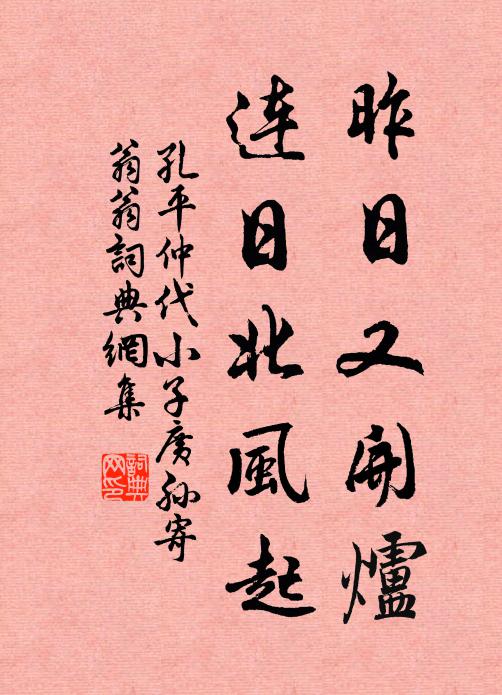 昨日又開爐
連日北風起
孔平仲代小子廣孫寄
翁翁詞典網集
詞典网印